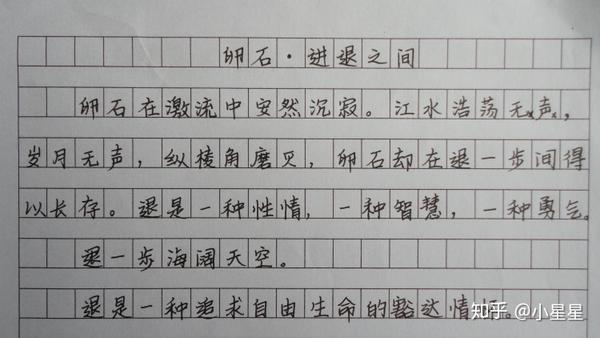 卵石·进退之间
卵石在激流中安然沉寂。江水浩荡无声，
岁月无声，纵棱角磨灭，卵石却在退一步间得
以长存。退是一种性情，一种智慧，一种勇气。
退一步海阔天空。
退是一种追求自由生命的豁达情怀。
知乎 @小星星